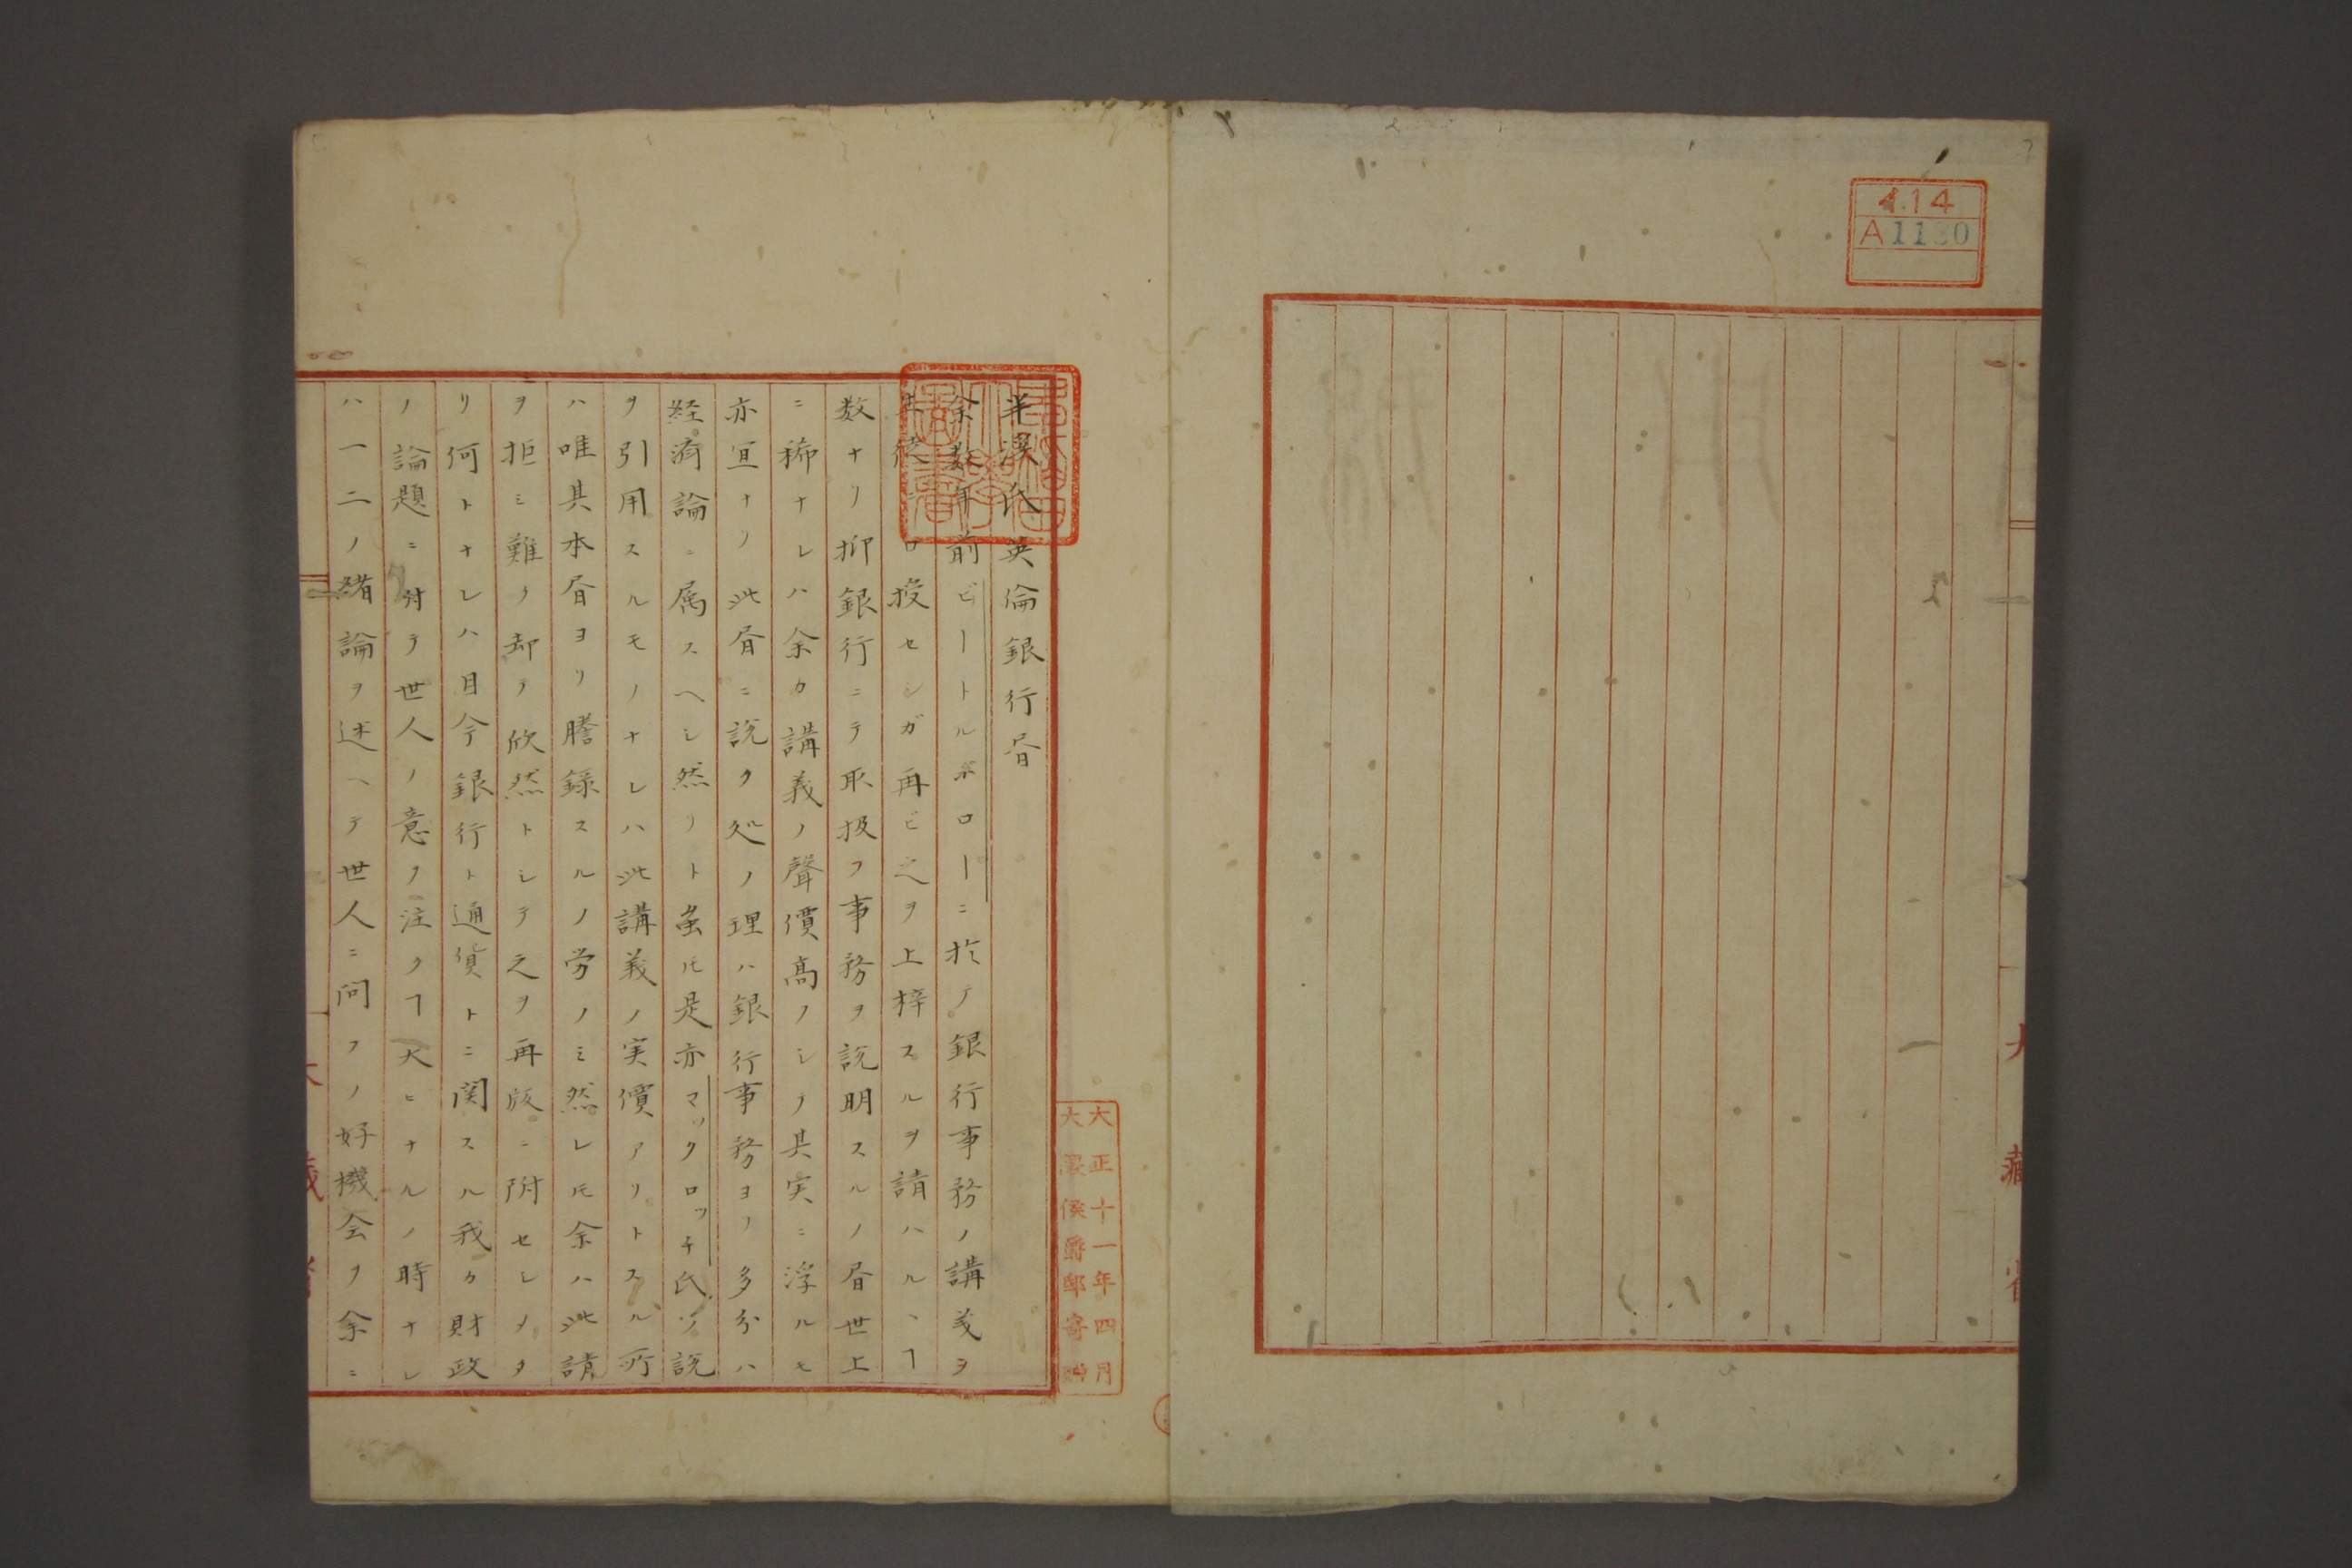 414
A1130
大蔵省
羊溪氏英倫銀行書
余数年前ビートルボローニ於テ銀行事務ノ講義ヲ
投セシガ再ビ之ヲ上梓スルヲ請ハル丶ヿ
数ナリ抑銀行ニテ取扱フ事務ヲ説明スルノ書世上
ニ稀ナレハ余カ講義ノ聲價高フシテ其実ニ浮ルモ
亦宜ナリ此書ニ説ク処ノ理ハ銀行事務ヨリ多分ハ
経済論ニ属スヘシ然リト虽𪜈是亦マックロッチ氏ノ説
ヲ引用スルモノナレハ此講義ノ実價アリトスル所
ハ唯其本書ヨリ謄録スルノ労ノミ然レ𪜈余ハ此請
ヲ拒ミ難ク却テ欣然トシテ之ヲ再版ニ附セシメタ
リ何トナレハ目今銀行ト通貨トニ関スル我カ財政
ノ論題ニ付テ世人ノ意ヲ注クヿ大ヒナルノ時ナレ
ハ一二ノ緒論ヲ述ヘテ世人ニ問フノ好機会ヲ余ニ
大正十一年四月
大隈侯爵邸寄贈